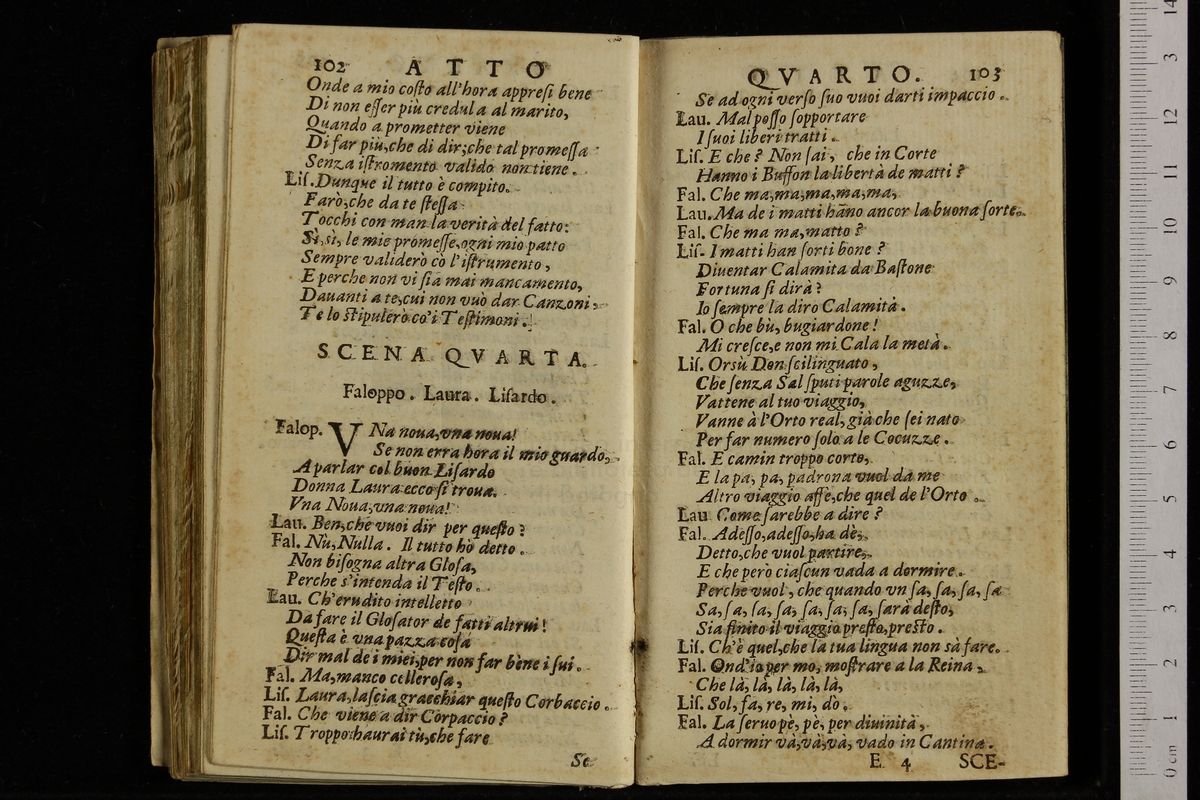 102 ATTO
Onde a mio costo all'hora appresi bene
Di non esser più credula al marito,
Quando a prometter viene
Di far più, che di dir; che tal promessa
Senza istromento valido non tiene.
Lis. Dunque il tutto è compito.
Farò, che da te stessa
Tocchi con man la verità del fatto:
Sì, sì, le mie promesse, ogni mio patto
Sempre validerò cò l'istrumento,
E perche non vi sia mai mancamento,
Dauanti a te, cui non vuò dar Canzoni,
Te lo stipulerò co'i Testimoni.
SCENA QVARTA.
Faloppo. Laura. Lisardo.
Falop. VNa noua, vna noua!
Se non erra hora il mio guardo,
A parlar col buon Lisardo
Donna Laura ecco si troua.
Vna Noua, vna noua!
Lau. Ben, che vuoi dir per questo?
Fal. Nù, Nulla. Il tutto hò detto.
Non bisogna altra Glosa,
Perche s'intenda il Testo.
Lau. Ch'erudito intelletto
Da fare il Glosator de fatti altrui!
Questa è vna pazza cosa
Dir mal de i miei, per non far bène i sui.
Fal. Ma, manco collerosa,
Lis. Laura, lascia gracchiar questo Corbaccio.
Fal. Che viene a dir Corpaccio?
Lis. Troppo haurai tù, che fare
Se
QVARTO. 103
Se ad ogni verso suo vuoi darti impaccio.
Lau. Mal posso sopportare
I suoi liberi tratti.
Lis. E che? Non sai, che in Corte
Hanno i Buffon la libertà de matti?
Fal. Che ma, ma, ma, ma, ma,
Lau. Ma de i matti hãno ancor la buona sorte.
Fal. Che ma ma, matto?
Lis. I matti han sorti bone?
Diuentar Calamita da Bastone
Fortuna si dirà?
Io sempre la diro Calamità.
Fal. O che bù, bugiardone!
Mi cresce, e non mi Cala la metà.
Lis. Orsù Don scilinguato,
Che senza Sal sputi parole aguzze,
Vattene al tuo viaggio,
Vanne à l'Orto real, già che sei nato
Per far numero solo a le Cocuzze.
Fal. E camin troppo corto,
E la pa, pa, padrona vuol da me
Altro viaggio affè, che quel de l'Orto.
Lau Come sarebbe a dire?
Fal. Adesso, adesso, ha dè,
Detto, che vuol partire,
E che però ciascun vada a dormire.
Perche vuol, che quando vn sa, sa, sa, sa
Sa, sa, sa, sa, sa, sa, sa, sarà desto,
Sia finito il viaggio presto, presto.
Lis. Ch'è quel, che la tua lingua non sà fare.
Fal. Ond'io per mo, mostrare a la Reina,
Che là, là, là, là, là,
Lis. Sol, fa, re, mi, dò.
Fal. La seruo pè, pè, per diuinità,
A dormir và, và, và, vado in Cantina.
E 4 SCE-
0 cm 1 2 3 4 5 6 7 8 9 10 11 12 3 14